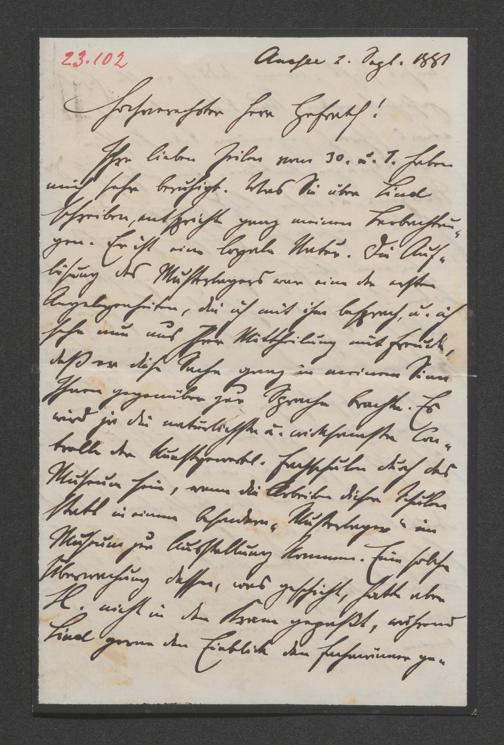 23.102
Aussee 2. Sept. 1881
Hochverehrter Herr Hofrath!
Ihre lieben Zeilen vom 30. u. 1. haben
mich sehr beruhigt. Was Sie über Lind
schreiben, entspricht ganz meinen Beobachtun-
gen. Er ist eine loyale Natur. Die Auf-
lösung des Musterlagers war eine der ersten
Angelegenheiten, die ich mit ihm besprach, u. ich
sehe nun aus Ihrer Mittheilung mit Freude,
daß er diese Sache ganz in meinem Sinne
Ihnen gegenüber zur Sprache brachte. Es
wird ja die natürlichste u. wirksamste Con-
trolle der kunstgewerbl. Fachschulen durch das
Museum sein, wenn die Arbeiten dieser Schulen
statt in einem besondern „Musterlager“ im
Museum zur Ausstellung kommen. Eine solche
Überwachung dessen, was geschieht, hätte aber
St. nicht in den Kram gepaßt, während
Lind gerne den Einblick den Fachmännern ge-